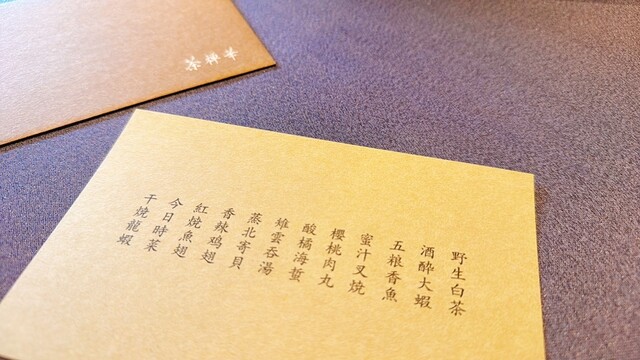 野生白茶
酒醉大蝦
五粮香魚
蜜汁叉燒
櫻桃肉丸
酸橘海蜇
雉雲吞湯
蒸北寄貝
香辣鸡翅
紅燒魚翅
今日時菜
干燒龍蝦